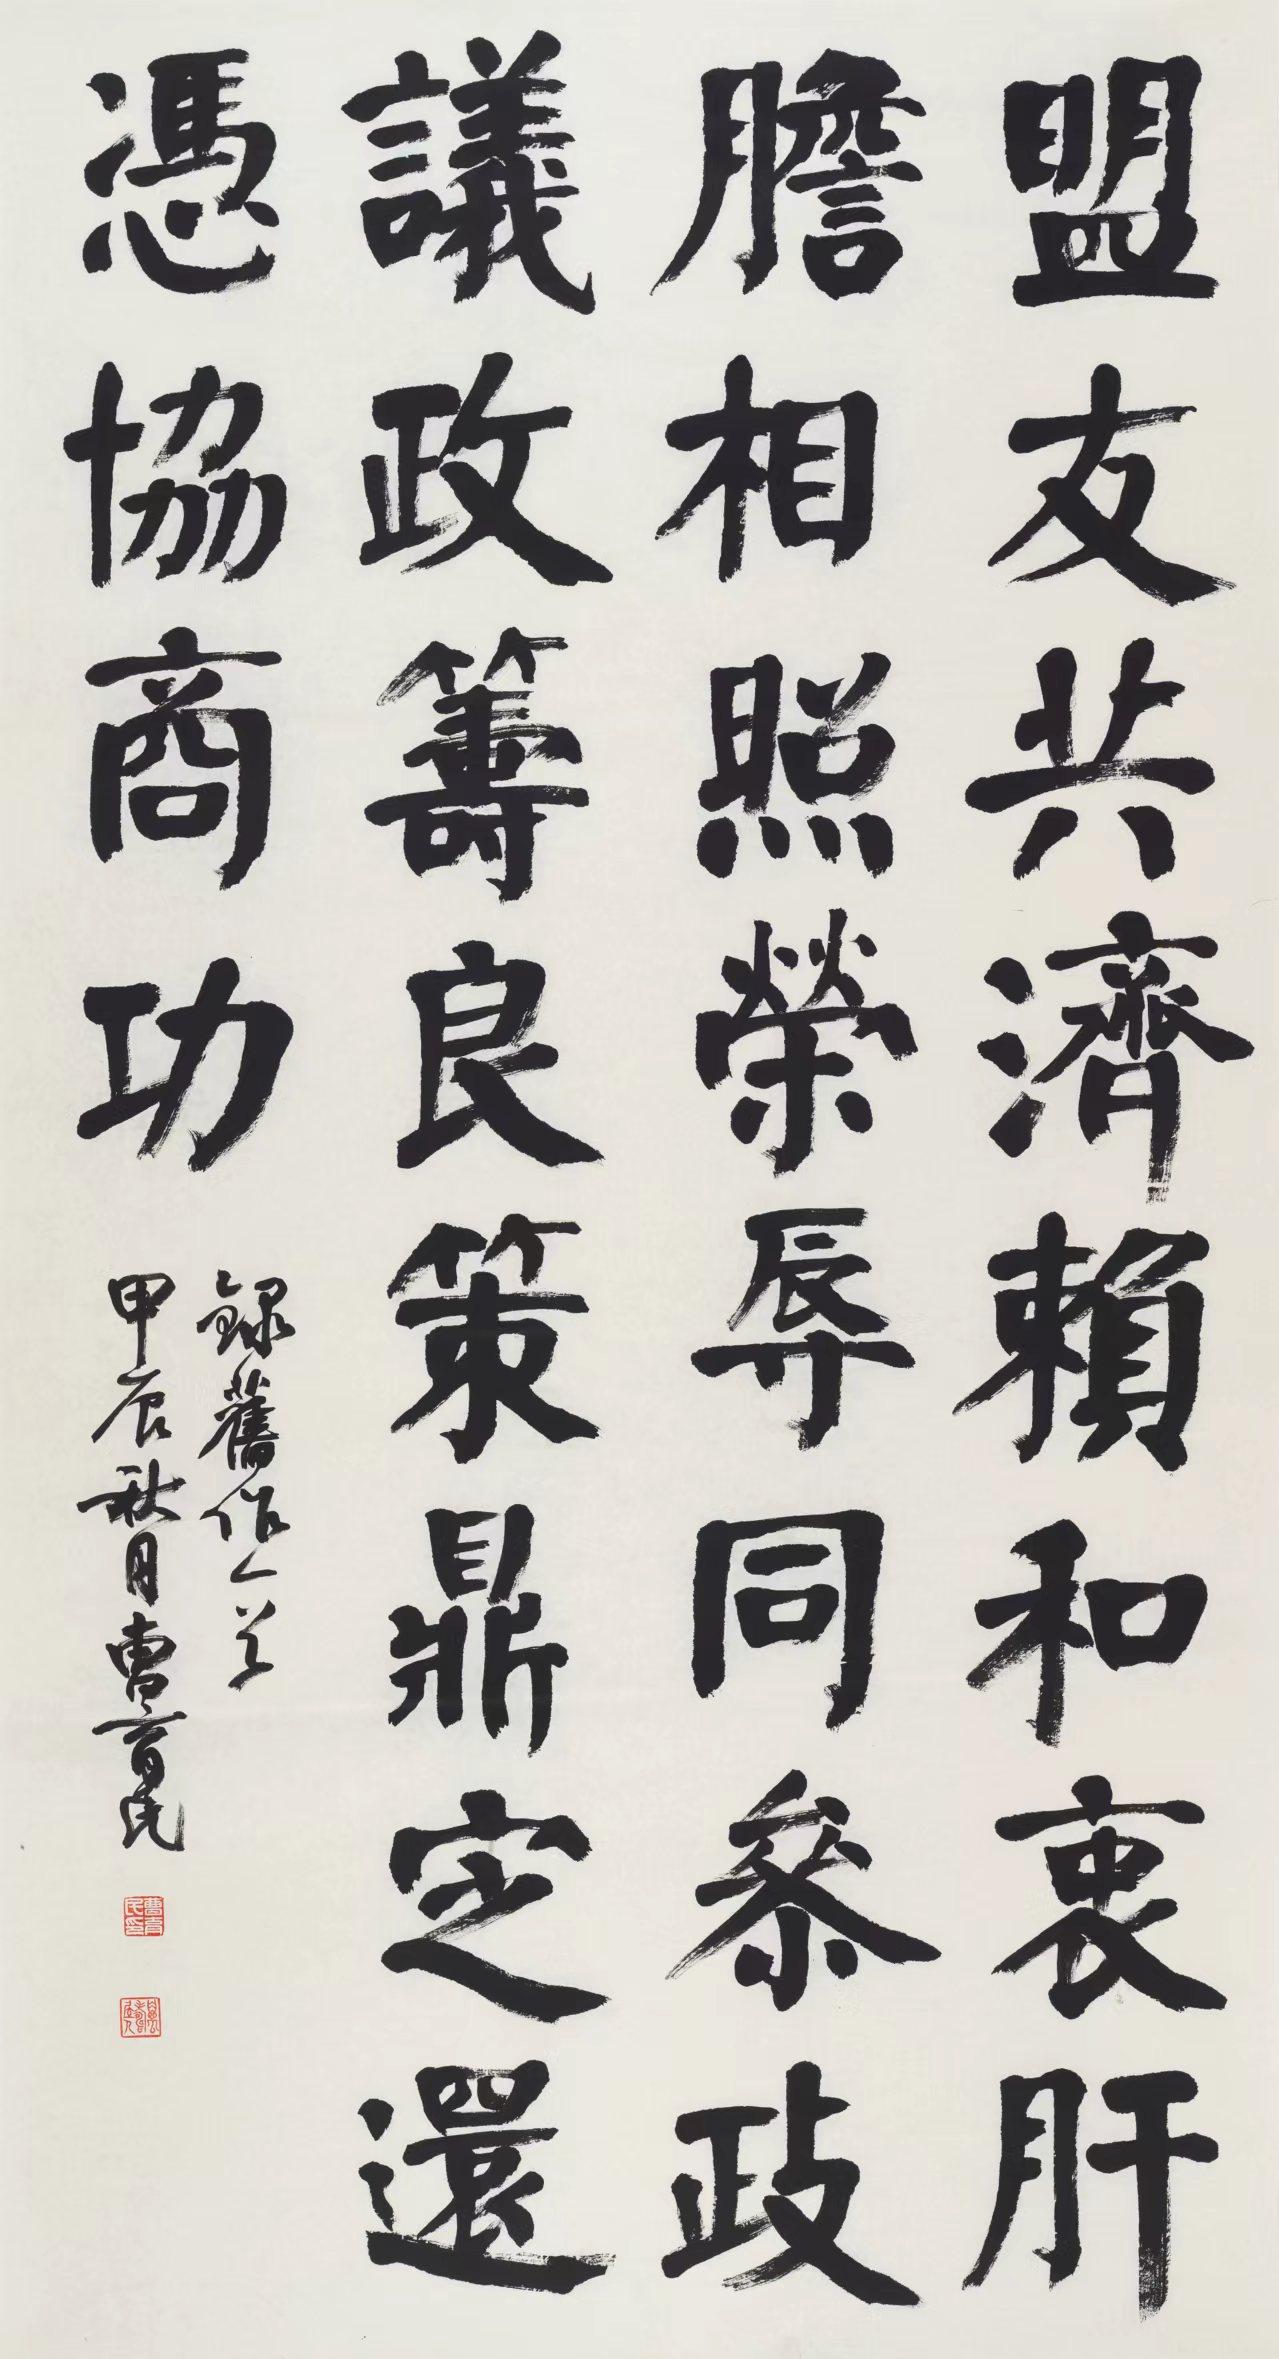 盟友共濟賴和衷肝
膽相照榮辱同參政
議政籌良策鼎定還
憑協商功
錄舊作一首
甲辰秋月曹育民
曹育民印